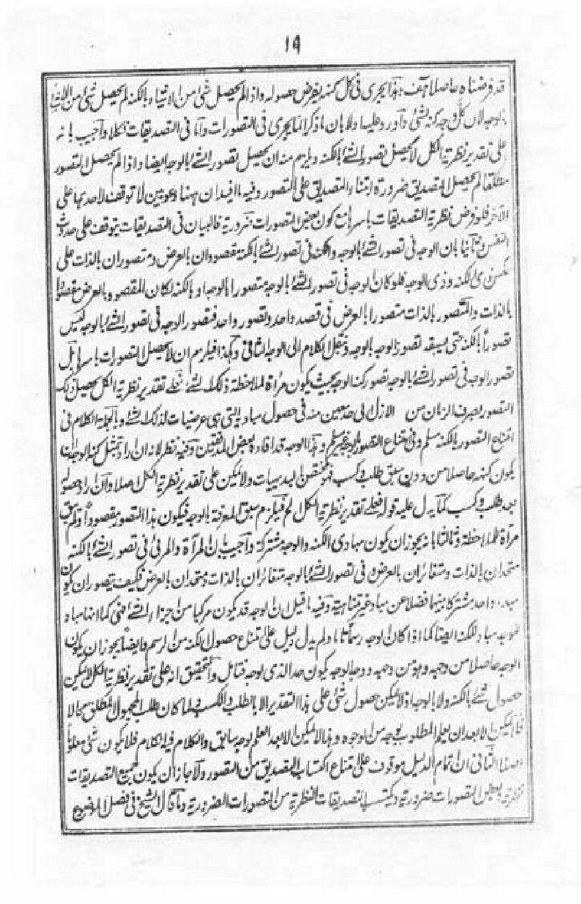 ۱۹
قد فرضناه عاصلا هف وهذا يجرى فى كل كنه يفرض حصوله واذا لم يحصل شئ من الاشياء بالكنه لم يحصل شئ من الاشياء
بالوجه لان كل وجه كنه لشئ واورد عليه اولا بان ما ذكر انما يجرى فى التصورات واما فى التصديقات فكلا واجيب بانه
على تقدير نظرية الكل لا يحصل تصور الشئ بالكنه ويلزم منه ان لا يحصل تصور الشئ بالوجه ايضا واذا لم يحصل التصور
مطلقا لم يحصل التصديق ضرورة ابتناء التصديق على التصور وفيه ان ههنا دعويين لا توقف لاحدهما على
الاخر فلو فرض نظرية التصديقات باسرها مع كون بعض التصورات ضرورية فالبيان فى التصديقات يتوقف على حدوث
النفس وثانيا بان الوجه فى تصور الشئ بالوجه والكنه فى تصور الشئ بالكنه مقصودان بالعرض ومتصوران بالذات على
عكس ذى الكنه وذى الوجه فلو كان الوجه فى تصور الشئ بالوجه متصورا بالوجه او بالكنه لكان المقصود بالعرض مقصودا
بالذات والمتصور بالذات متصورا بالعرض فى قصد واحد وتصور واحد فتصور الوجه فى تصور الشئ بالوجه ليس
تصورا بالكنه حتى يسبقه تصور الوجه بالوجه وينقل الكلام الى الوجه الثانى وهكذا فيلزم ان لا يحصل التصورات باسرها بل
تصور الوجه فى تصور الشئ بالوجه تصور كنه الوجه بحيث يكون مرآة لملاحظة ذلك الشئ فعلى تقدير نظرية الكل يحصل ذلك
التصور بصرف الزمان من الازل الى حد معين منه فى حصول مباديه التى هى عرضيات لذلك الشئ وبالجملة الكلام فى
امتناع التصور بالكنه مسلم وفى امتناع التصور بالوجه غير مسلم وهذا الوجه قد افاده بعض المدققين وفيه نظر لانه ان اراد بتمثل كنه الوجه ان
يكون كنهه حاصلا من دون سبق طلب وكسب فهو مختص بالبديهيات ولا يمكن على تقدير نظرية الكل اصلا وان اراد حصوله
بعد طلب وكسب كما يدل عليه قوله فعلى تقدير نظرية الكل فيلزم سبق المعرفة بالوجه فيكون هذا التصور مقصودا ولم يبق
مرآة للملاحظة وثالثا بانه يجوز ان يكون مبادى الكنه والوجه مشتركة واجيب بان المرآة والمرئى فى تصور الشئ بالكنه
متحدان بالذات ومتغائران بالعرض وفى تصور الشئ بالوجه متغائران بالذات ومتحدان بالعرض فكيف يتصور ان يكون
مبدء واحد مشتركا بينهما فضلا عن مباد غير متناهية وفيه ما قيل ان الوجه قد يكون مركبا من اجزاء الشئ فهى كما انها مباد
للوجه مباد للكنه ايضا كما اذا كان الوجه رسما تاما ولم يدل دليل على امتناع حصول الكنه من الرسم وايضا يجوز ان يكون
الوجه حاصلا من وجهه وهو من وجهه ووجه الوجه يكون حدا لذى الوجه فتامل والتحقيق انه على تقدير نظرية الكل لا يمكن
حصول شئ بالكنه ولا بالوجه اذ لا يمكن حصول شئ على هذا التقدير الا بالطلب والكسب فلما كان طلب المجهول المطلق محالا
فلا يمكن الا بعد ان يعلم المطلوب بوجه من الوجوه وهذا لا يمكن الا بعد العلم بوجه سابق والكلام فيه كالكلام فلا يكون شئ معلوما
اصلا الثانى ان تمام الدليل موقوف على امتناع اكتساب التصديق من التصور والا جاز ان يكون جميع التصديقات
نظرية وبعض التصورات ضرورية ويكتسب التصديقات النظرية من التصورات الضرورية وما قال الشيخ فى فصل الموضوع